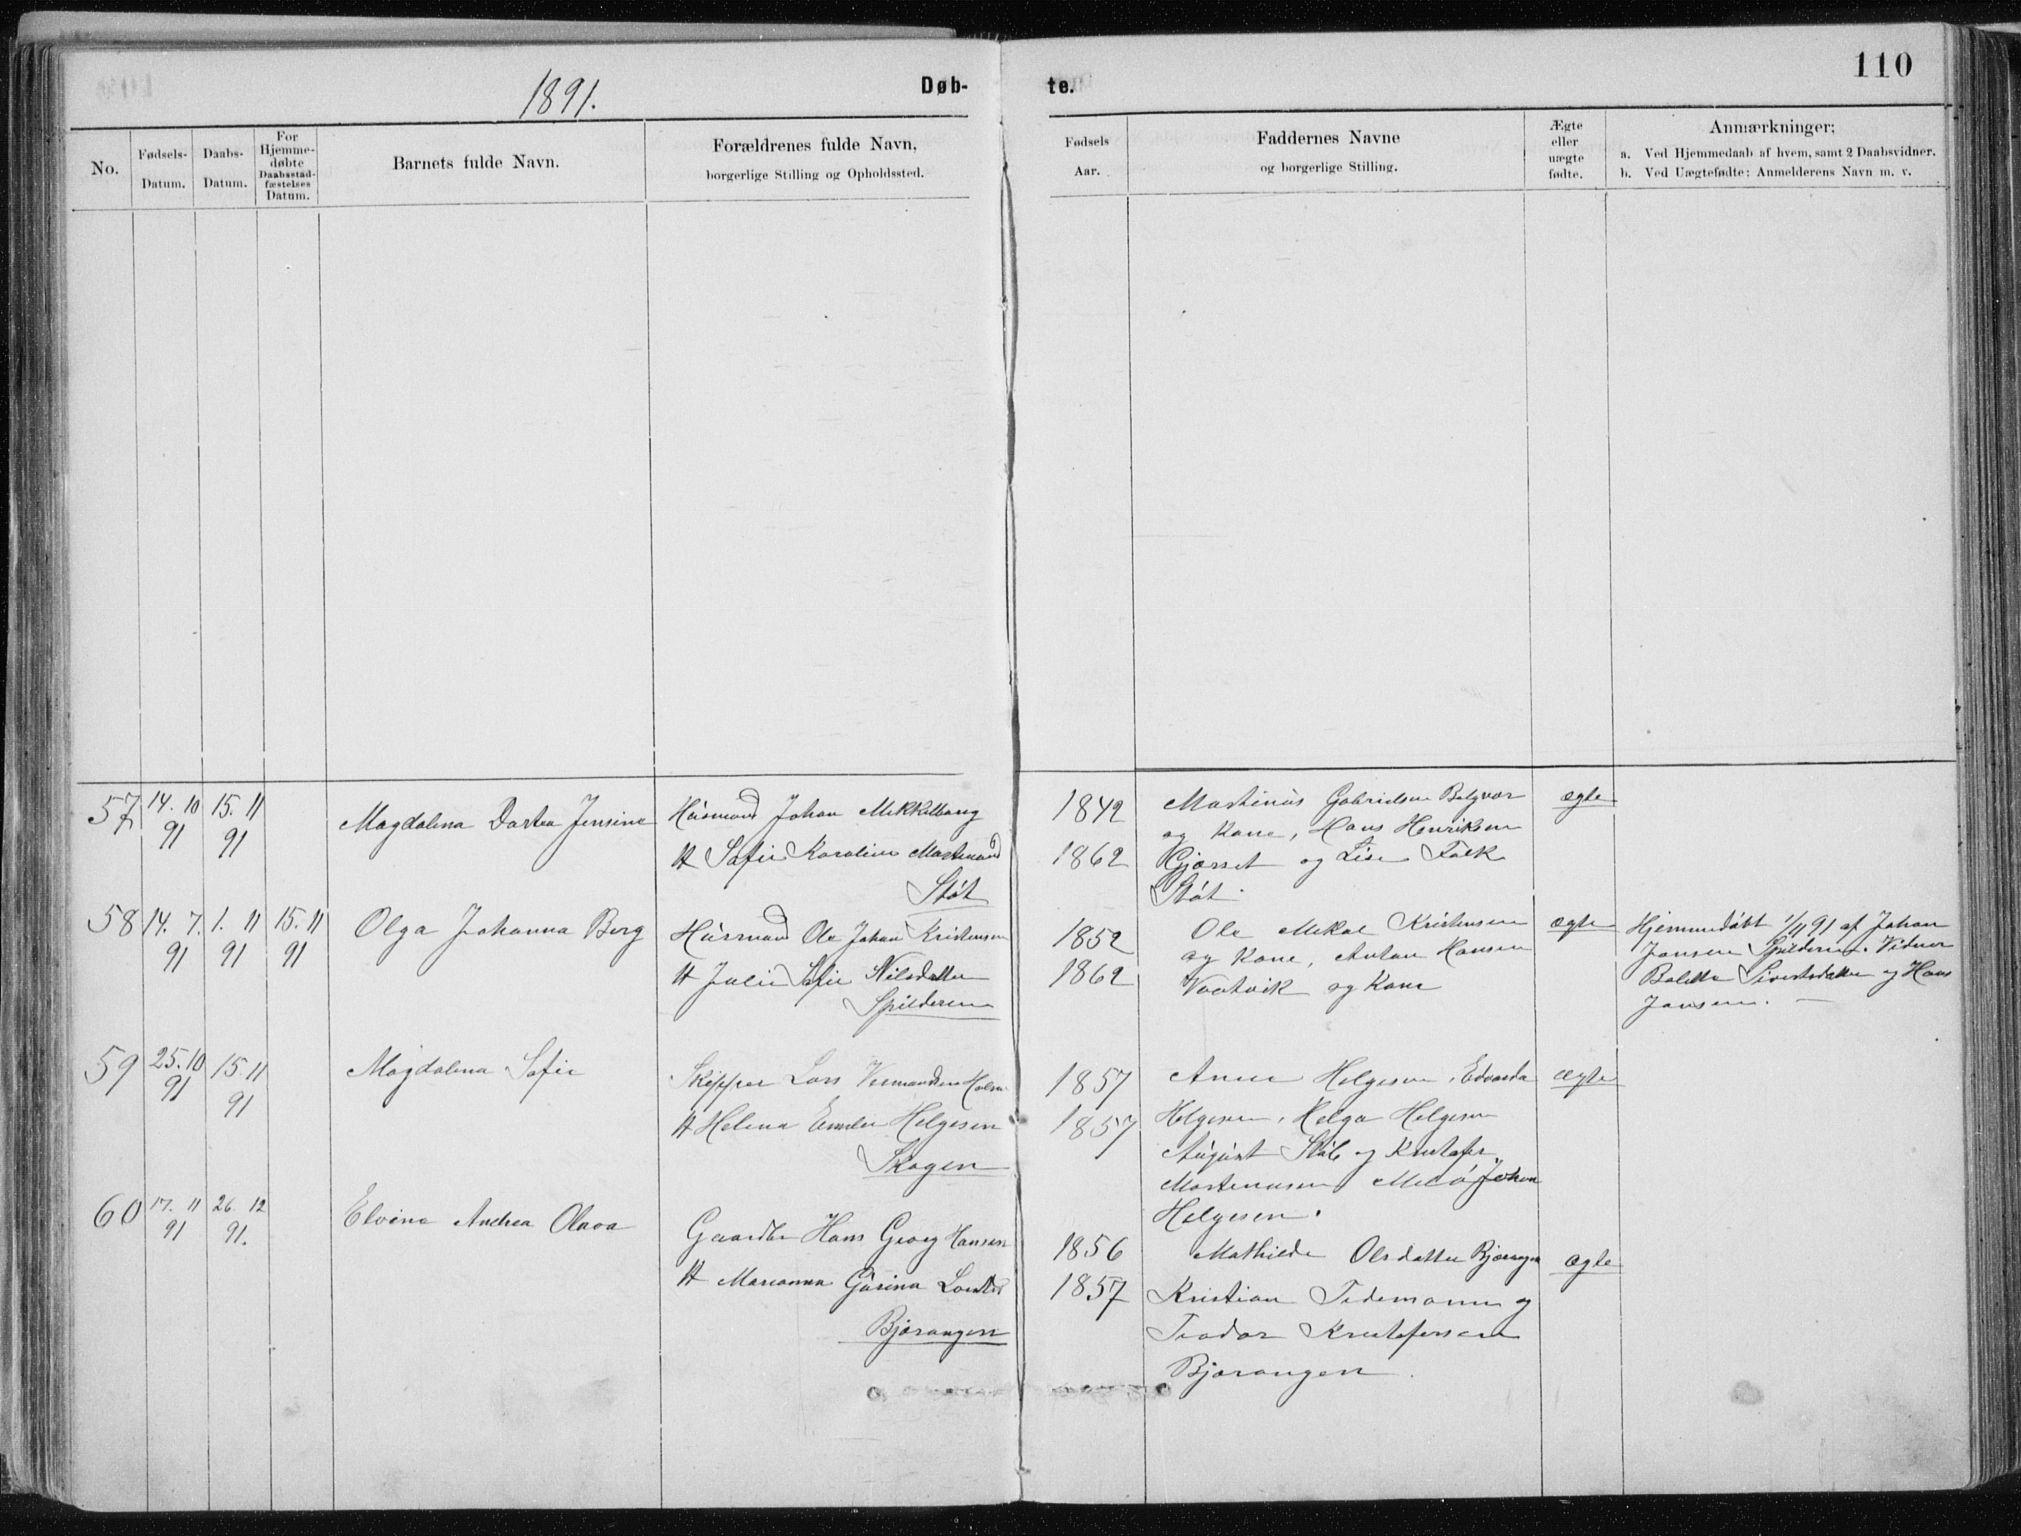 1891.
Døb-
te.
110
No.
Fødsels-
Datum.
Daabs-
Datum.
For
Hjemme-
døbte
Daabsstad-
fæstelses
Datum.
Barnets fulde Navn.
Forældrenes fulde Navn,
borgerlige Stilling og Opholdssted.
Fødsels
Aar.
Faddernes Navne
og borgerlige Stilling.
Ægte
eller
uægte
fødte.
Anmærkninger;
a. Ved Hjemmedaab af hvem, samt 2 Daabsvidner.
b. Ved Uægtefødte: Anmelderens Navn m. v.
57
14. 10
91
15. 11
91
Magdalena Dortea Jensine
Husmand Johan
H Sofie Karoline
Støt
1842
1862
Martinus Gabrielsen
og Kone, Hans Henriksen
og Lise Falk
Støt.
ægte
58
14. 7.
91
1. 11
91
15. 11
91
Olga Johanna Berg
Husmand Ole Johan Kristensen
H Julie Sofie Nilsdatter
Spilderen
1852
1862
Ole Mikal Kristensen
og Kone, Anton Hansen
Vaatvik og Kone
ægte
Hjemmedøbt 1/11 91 af Johan
Jansen Spilderen. Vidner
Sivertsdatter og Hans
Jansen.
59
25. 10
91
15. 11
91
Magdalena Sofie
Skipper Lars
H Helena Emilie Helgesen
Skogen
1857
1857
Anne Helgesen, Edvarda
Helgesen, Helga Helgesen
August og Kristofer
Martinusen Johan
Helgesen.
ægte
60
17. 11
91
26. 12
91.
Elvine Andrea Olava
Gaardbr Hans Georg Hansen
H Marianna Gurina
Bjørangen
1856
1857
Mathilde Olsdatter Bjørangen
Kristian Tidemann og
Teodor Kristofersen
Bjørangen.
ægte